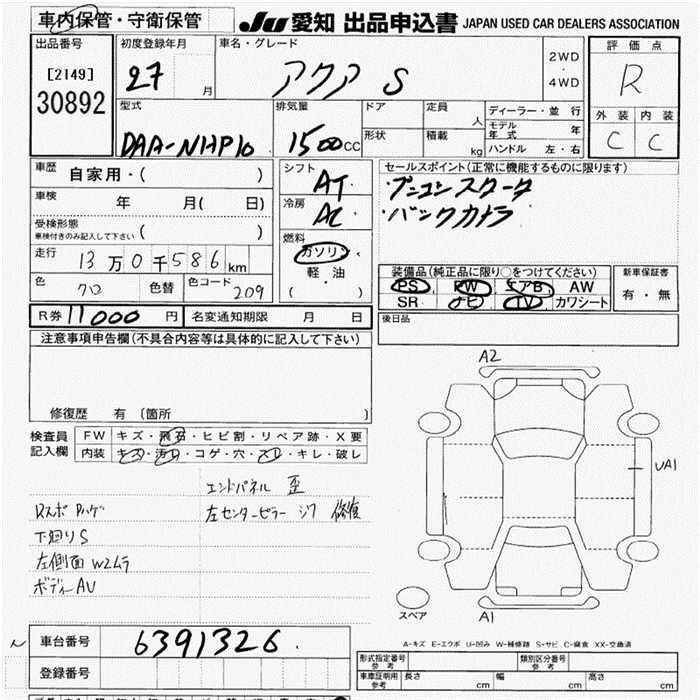 車内保管・守衛保管
JU 愛知 出品申込書 JAPAN USED CAR DEALERS ASSOCIATION
出品番号
[2149]
30892
初度登録年月
27 月
車名・グレード
アクア S
2WD
・
4WD
評価点
R
外装 内装
C C
型式
DAA-NHP10
排気量
1500 CC
ドア
形状
定員 人
積載 kg
ディーラー・並行
モデル年式 年
ハンドル 左・右
車歴
自家用・( )
車検 年 月( 日)
受検形態
車検付きのみ記入して下さい ( )
走行
13万0千586km
色 クロ 色替 色コード 209
シフト
AT
冷房
AC
燃料
ガソリン
軽・油
( )
セールスポイント(正常に機能するものに限ります)
・プッシュスタート
・バックカメラ
装備品(純正品に限り○をつけてください)
PS PW エアB AW
SR ナビ TV カワシート
新車保証書
有・無
R券 11000 円 名変通知期限 月 日
後日品
注意事項申告欄(不具合内容等は具体的に記入して下さい)
修復歴 有 (箇所 )
検査員
記入欄
FW キズ・飛石・ヒビ割・リペア跡・X要
内装 キズ・汚レ・コゲ・穴・スレ・キレ・破レ
エンドパネル 歪
左センターピラー 修復
Rスポ Pハゲ
下廻りS
左側面 W2ムラ
ボディーAU
A2
UA1
A1
スペア
A-キズ E-エクボ U-凹み W-補修跡 S-サビ C-腐食 XX-交換済
車台番号 6391326
登録番号
形式指定番号
参考
類別区分番号
参考
車庫証明用
参考
長さ cm 幅 cm 高さ cm